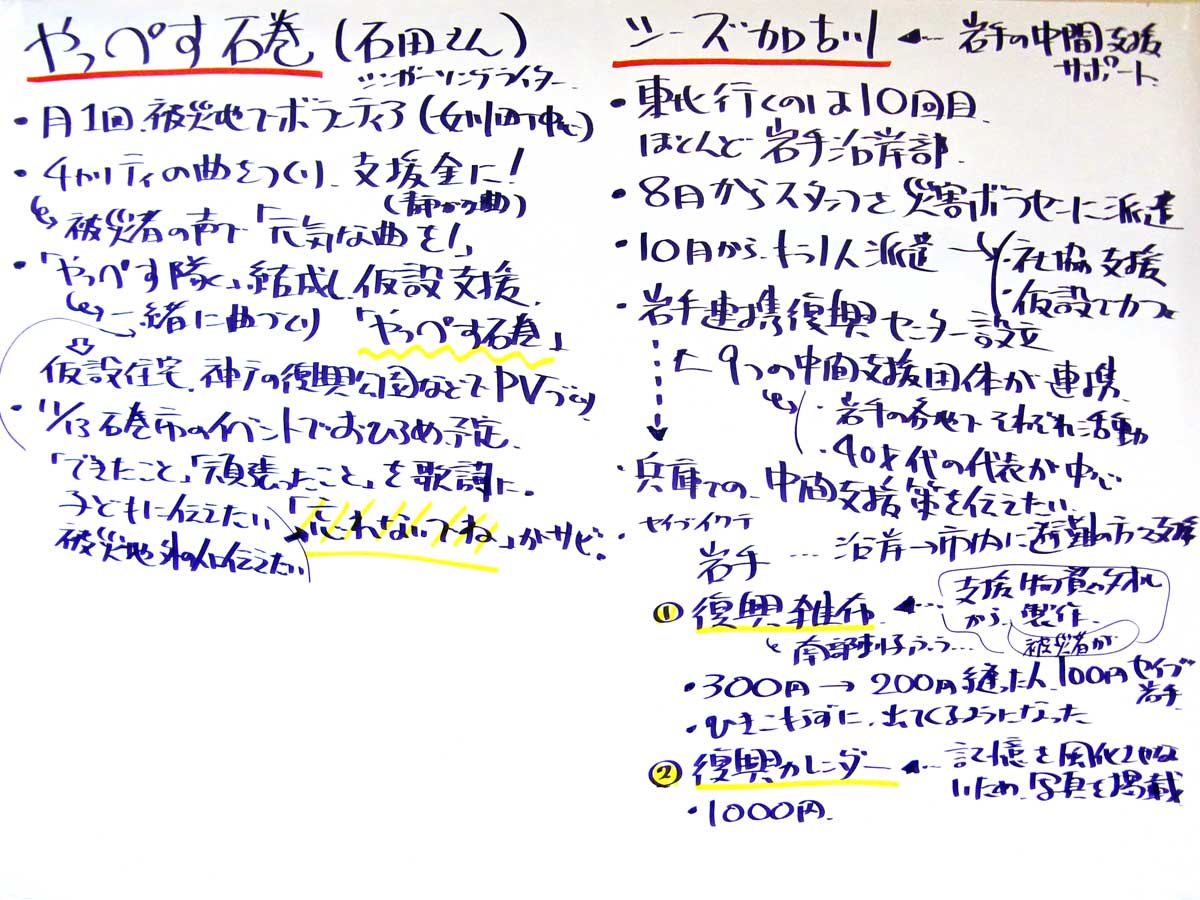 やっぺす石巻(石田さん)
シンガーソングライター
・月1回、被災地でボランティア(女川町中心)
・チャリティの曲をつくり、支援金に!
(静かな曲)
被災者の声で「元気な曲を!」
・「やっぺす隊」結成し仮設支援、
一緒に曲づくり「やっぺす石巻」
仮設住宅、神戸の復興公園などでPVづくり
・11/13石巻市のイベントでおひろめ予定、
「できたこと」「頑張ったこと」を歌詞に。
子どもに伝えたい
被災地外の人に伝えたい
「忘れないでね」がサビ。
シーズ加古川 岩手の中間支援
サポート
・東北行くのは10回目
ほとんど岩手沿岸部
・8月からスタッフを災害ボラセンに派遣
・10月から、もう1人派遣
・社協支援
・仮設でカフェ
・岩手連携復興センター設立
9つの中間支援団体が連携
・岩手の各地でそれぞれに活動
・40才代の代表が中心
・兵庫での、中間支援策を伝えたい、
・セイブイワテ
岩手 … 沿岸→市内に避難の方を支援
①復興雑巾 支援物資のタオル
から、製作、
被災者が
と南部
・300円→200円縫った人、100円セイブ
岩手
・ひきこもらずに、出てくるようになった
②復興カレンダー 記憶を風化させな
いため、写真を掲載
・1000円